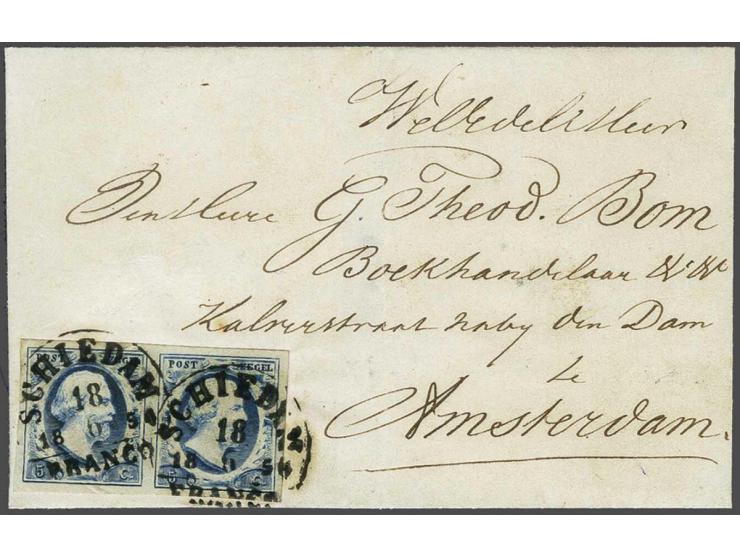 WelEdelHeer
Den Heere G. Theod. Bom
Boekhandelaar &c &c
Kalverstraat naby den Dam
te
Amsterdam.
POST C. POST ZEGEL
SCHIEDAM SCHIEDAM
18 18
18 6 54 18 6 54
FRANCO FRANCO
5 C. 5 C.